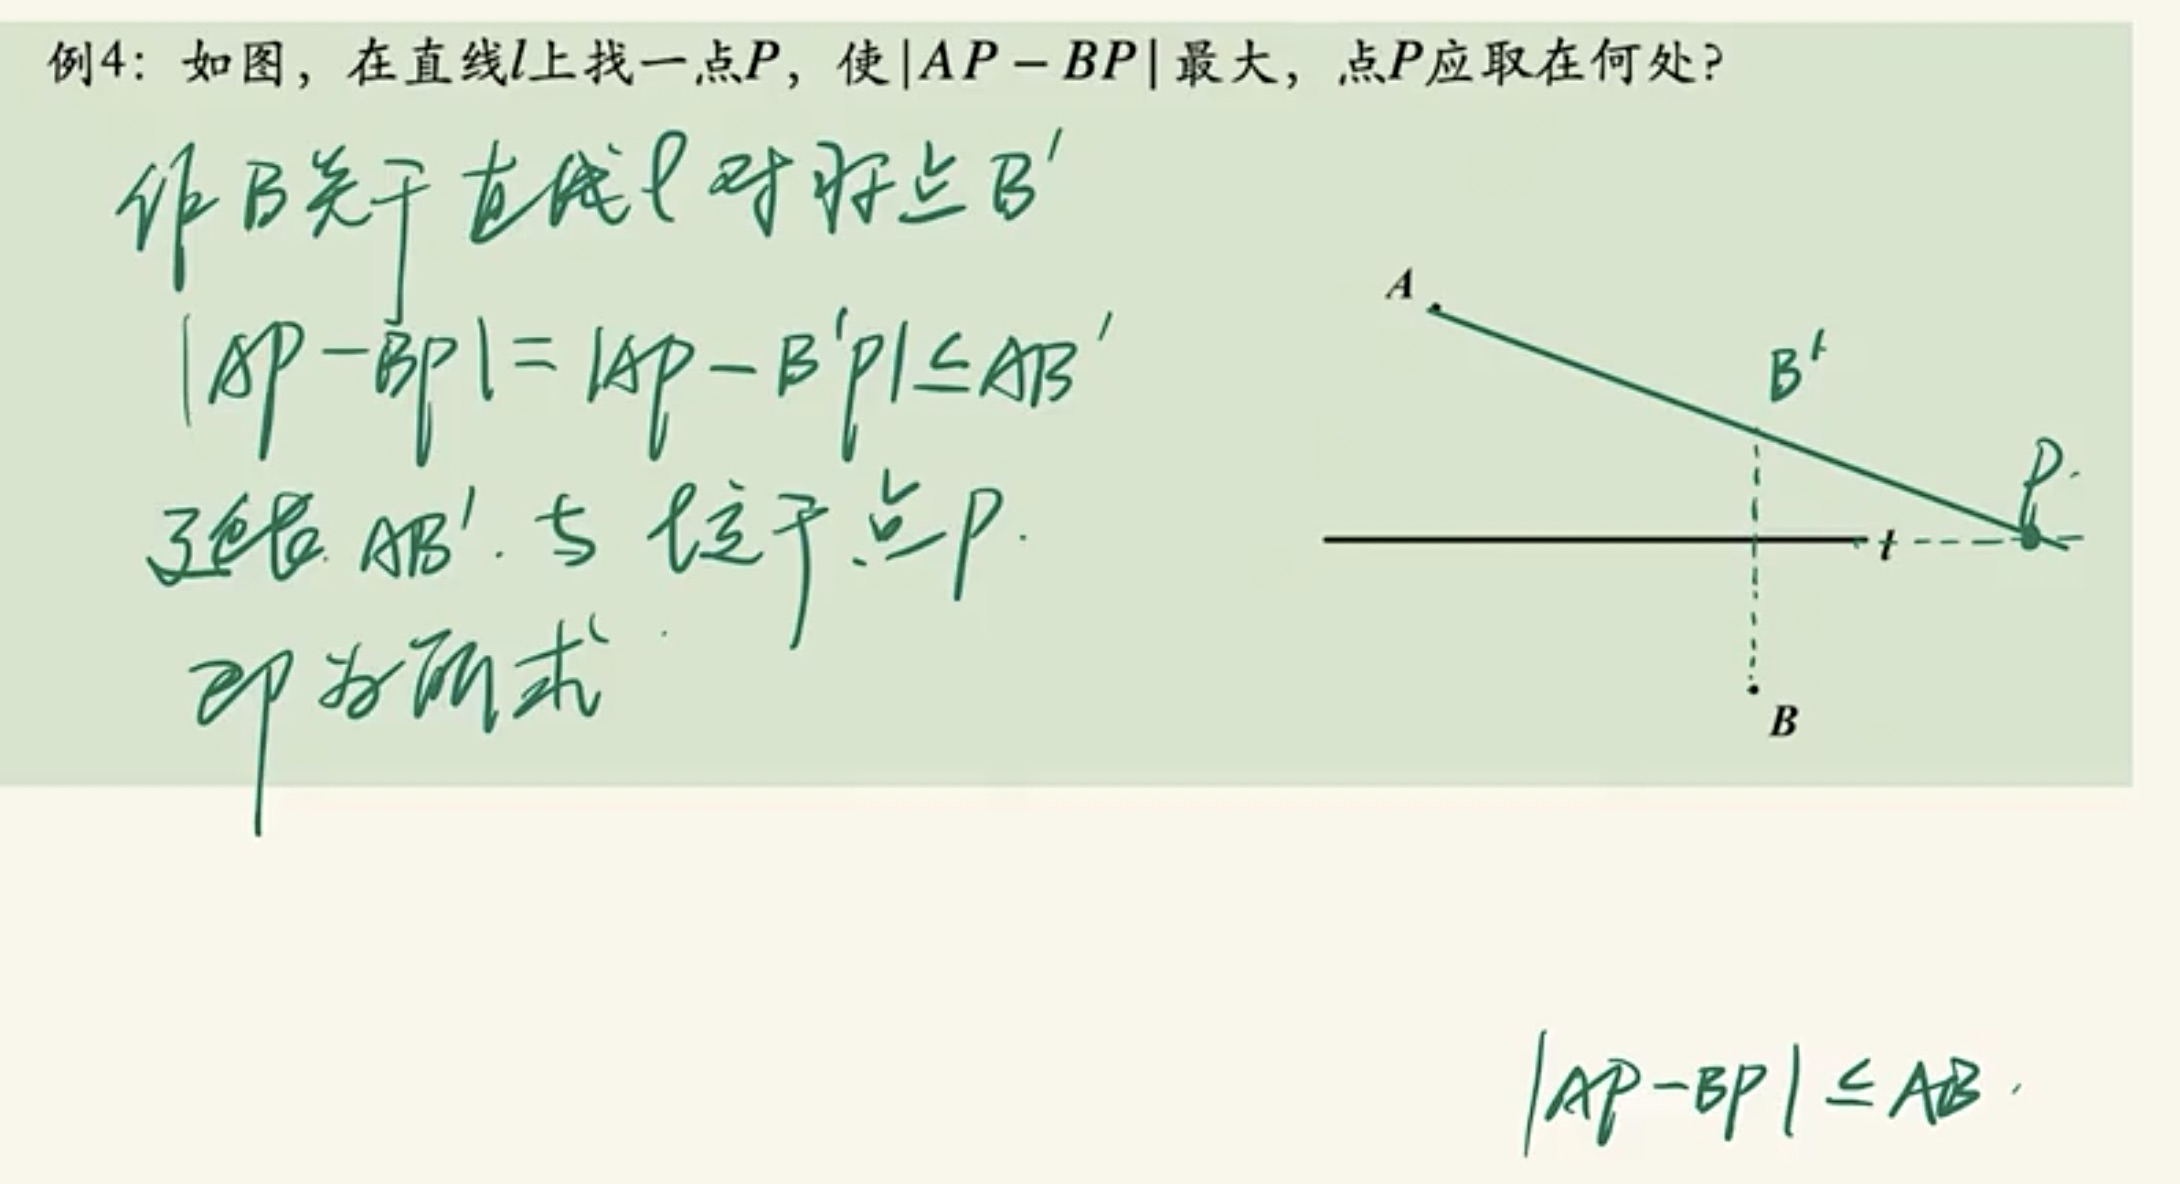 例4：如图，在直线l上找一点P，使|AP－BP|最大，点P应取在何处？
作B关于直线l对称点B'
|AP－BP|=|AP－B'P|≤AB'
延长AB'．与l交于点P．
即为所求
A
B'
P．
l
B
|AP－BP|≤AB．